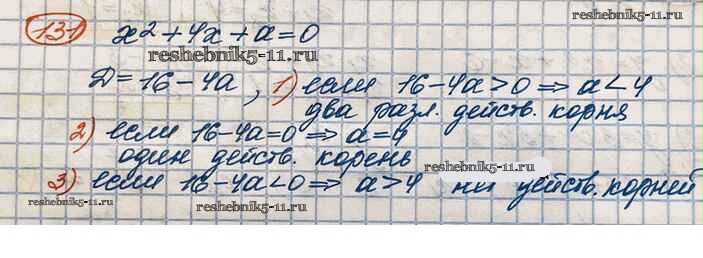 131 x² + 4x + a = 0
reshebnik5-11.ru
D = 16 - 4a, 1) если 16 - 4a > 0 ⇒ a < 4
reshebnik5-11.ru
два разл. действ. корня
2) если 16 - 4a = 0 ⇒ a = 4
один действ. корень reshebnik5-11.ru
3) если 16 - 4a < 0 ⇒ a > 4 действ. корней
reshebnik5-11.ru reshebnik5-11.ru